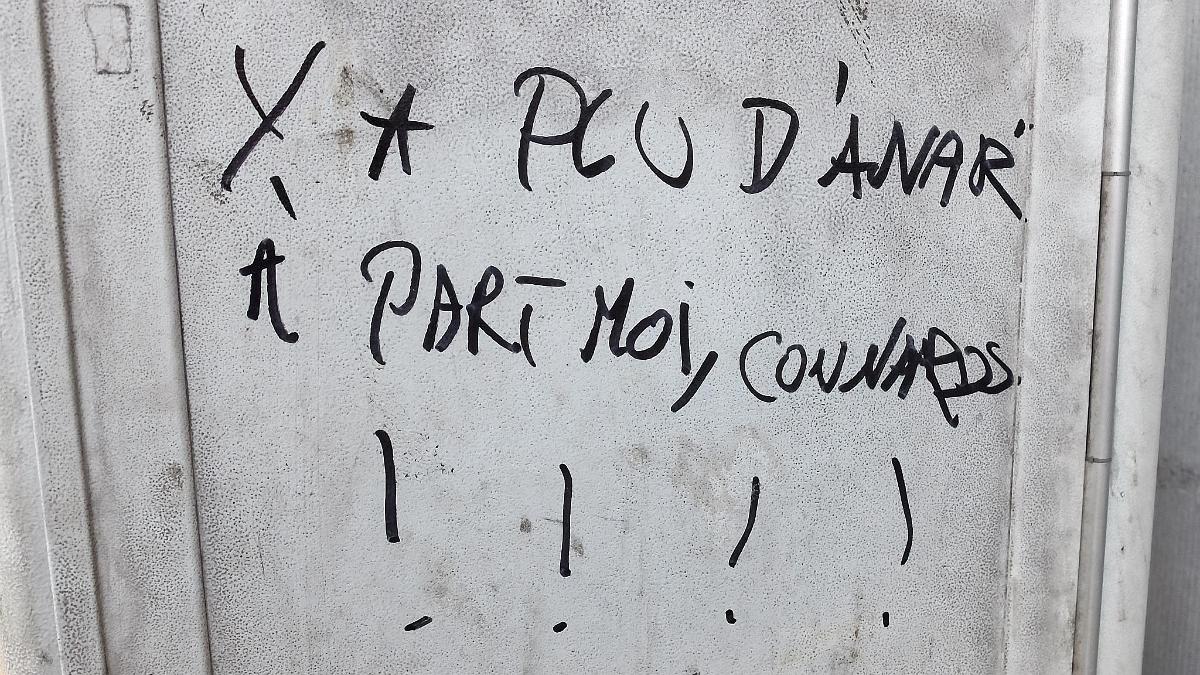 Y A PLU D'ANAR
À PART MOI, CONNARDS.
! ! ! !